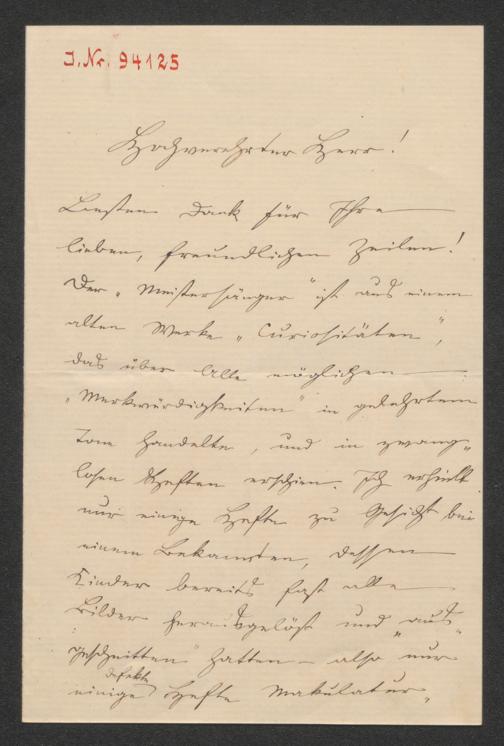 J. Nr. 94125
Hochverehrter Herr!
Besten Dank für Ihre
lieben, freundlichen Zeilen!
Der „Meistersänger" ist aus einem
alten Werke „Curiositäten",
das über alle möglichen
„Merkwürdigkeiten" in gelehrtem
Tone handelte, und in zwang„
losen Heften erschien. Ich erhielt
nur einige Hefte zu Gesicht bei
einem Bekannten, dessen
Kinder bereits fast alle
Bilder herausgelöst und „aus„
geschnitten" hatten – also nur
defekte
einige Hefte Makulatur„